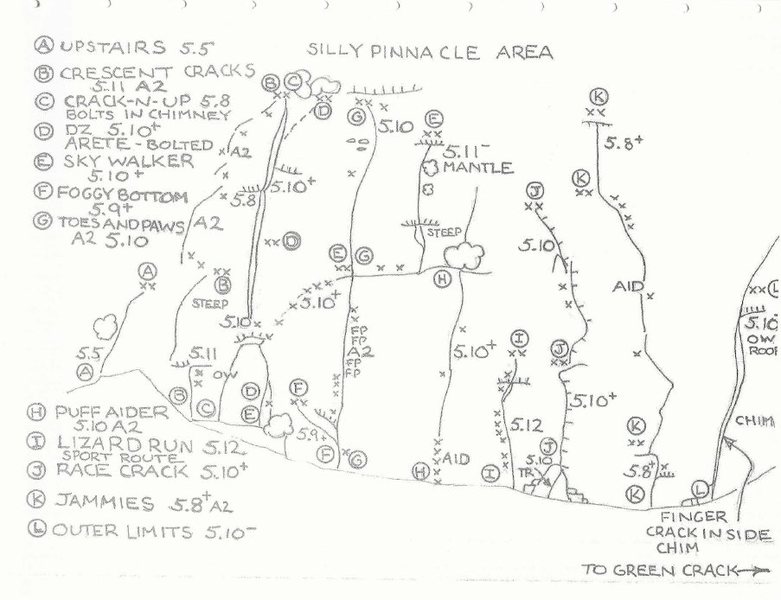 SILLY PINNACLE AREA
A UPSTAIRS 5.5
B CRESCENT CRACKS
5.11 A2
C CRACK-N-UP 5.8
BOLTS IN CHIMNEY
D DZ 5.10+
ARETE-BOLTED
E SKY WALKER
5.10+
F FOGGY BOTTOM
5.9+
G TOES AND PAWS
A2 5.10
H PUFF AIDER
5.10 A2
I LIZARD RUN 5.12
SPORT ROUTE
J RACE CRACK 5.10+
K JAMMIES 5.8+ A2
L OUTER LIMITS 5.10-
B C
D
G
5.10
E
5.11-
MANTLE
K
5.8+
A2
5.8
5.10+
A2
D
STEEP
J
K
5.10
A
B
STEEP
E G
H
5.10+
AID
L
5.10
OW
ROOF
5.10
FP
FP
A2
FP
FP
5.10+
I
J
5.5
A
5.11
OW
B
C
D
E
F
5.9+
F
G
H
AID
I
5.12
5.10+
J
5.10
TR
K
5.8+
K
CHIM
L
FINGER
CRACK INSIDE
CHIM
TO GREEN CRACK